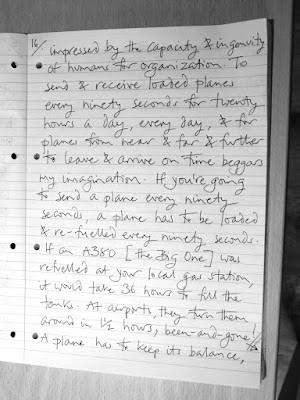 16/.
impressed by the capacity & ingenuity
of humans for organization. To
send & receive loaded planes
every ninety seconds for twenty
hours a day, every day, & for
planes from near & far & further
to leave & arrive on time beggars
my imagination. If you're going
to send a plane every ninety
seconds, a plane has to be loaded
& re-fuelled every ninety seconds.
If an A380 [the Big One] was
refuelled at your local gas station,
it would take 36 hours to fill the
tanks. At airports, they turn them
around in 1½ hours, been-and-gone!
A plane has to keep its balance,